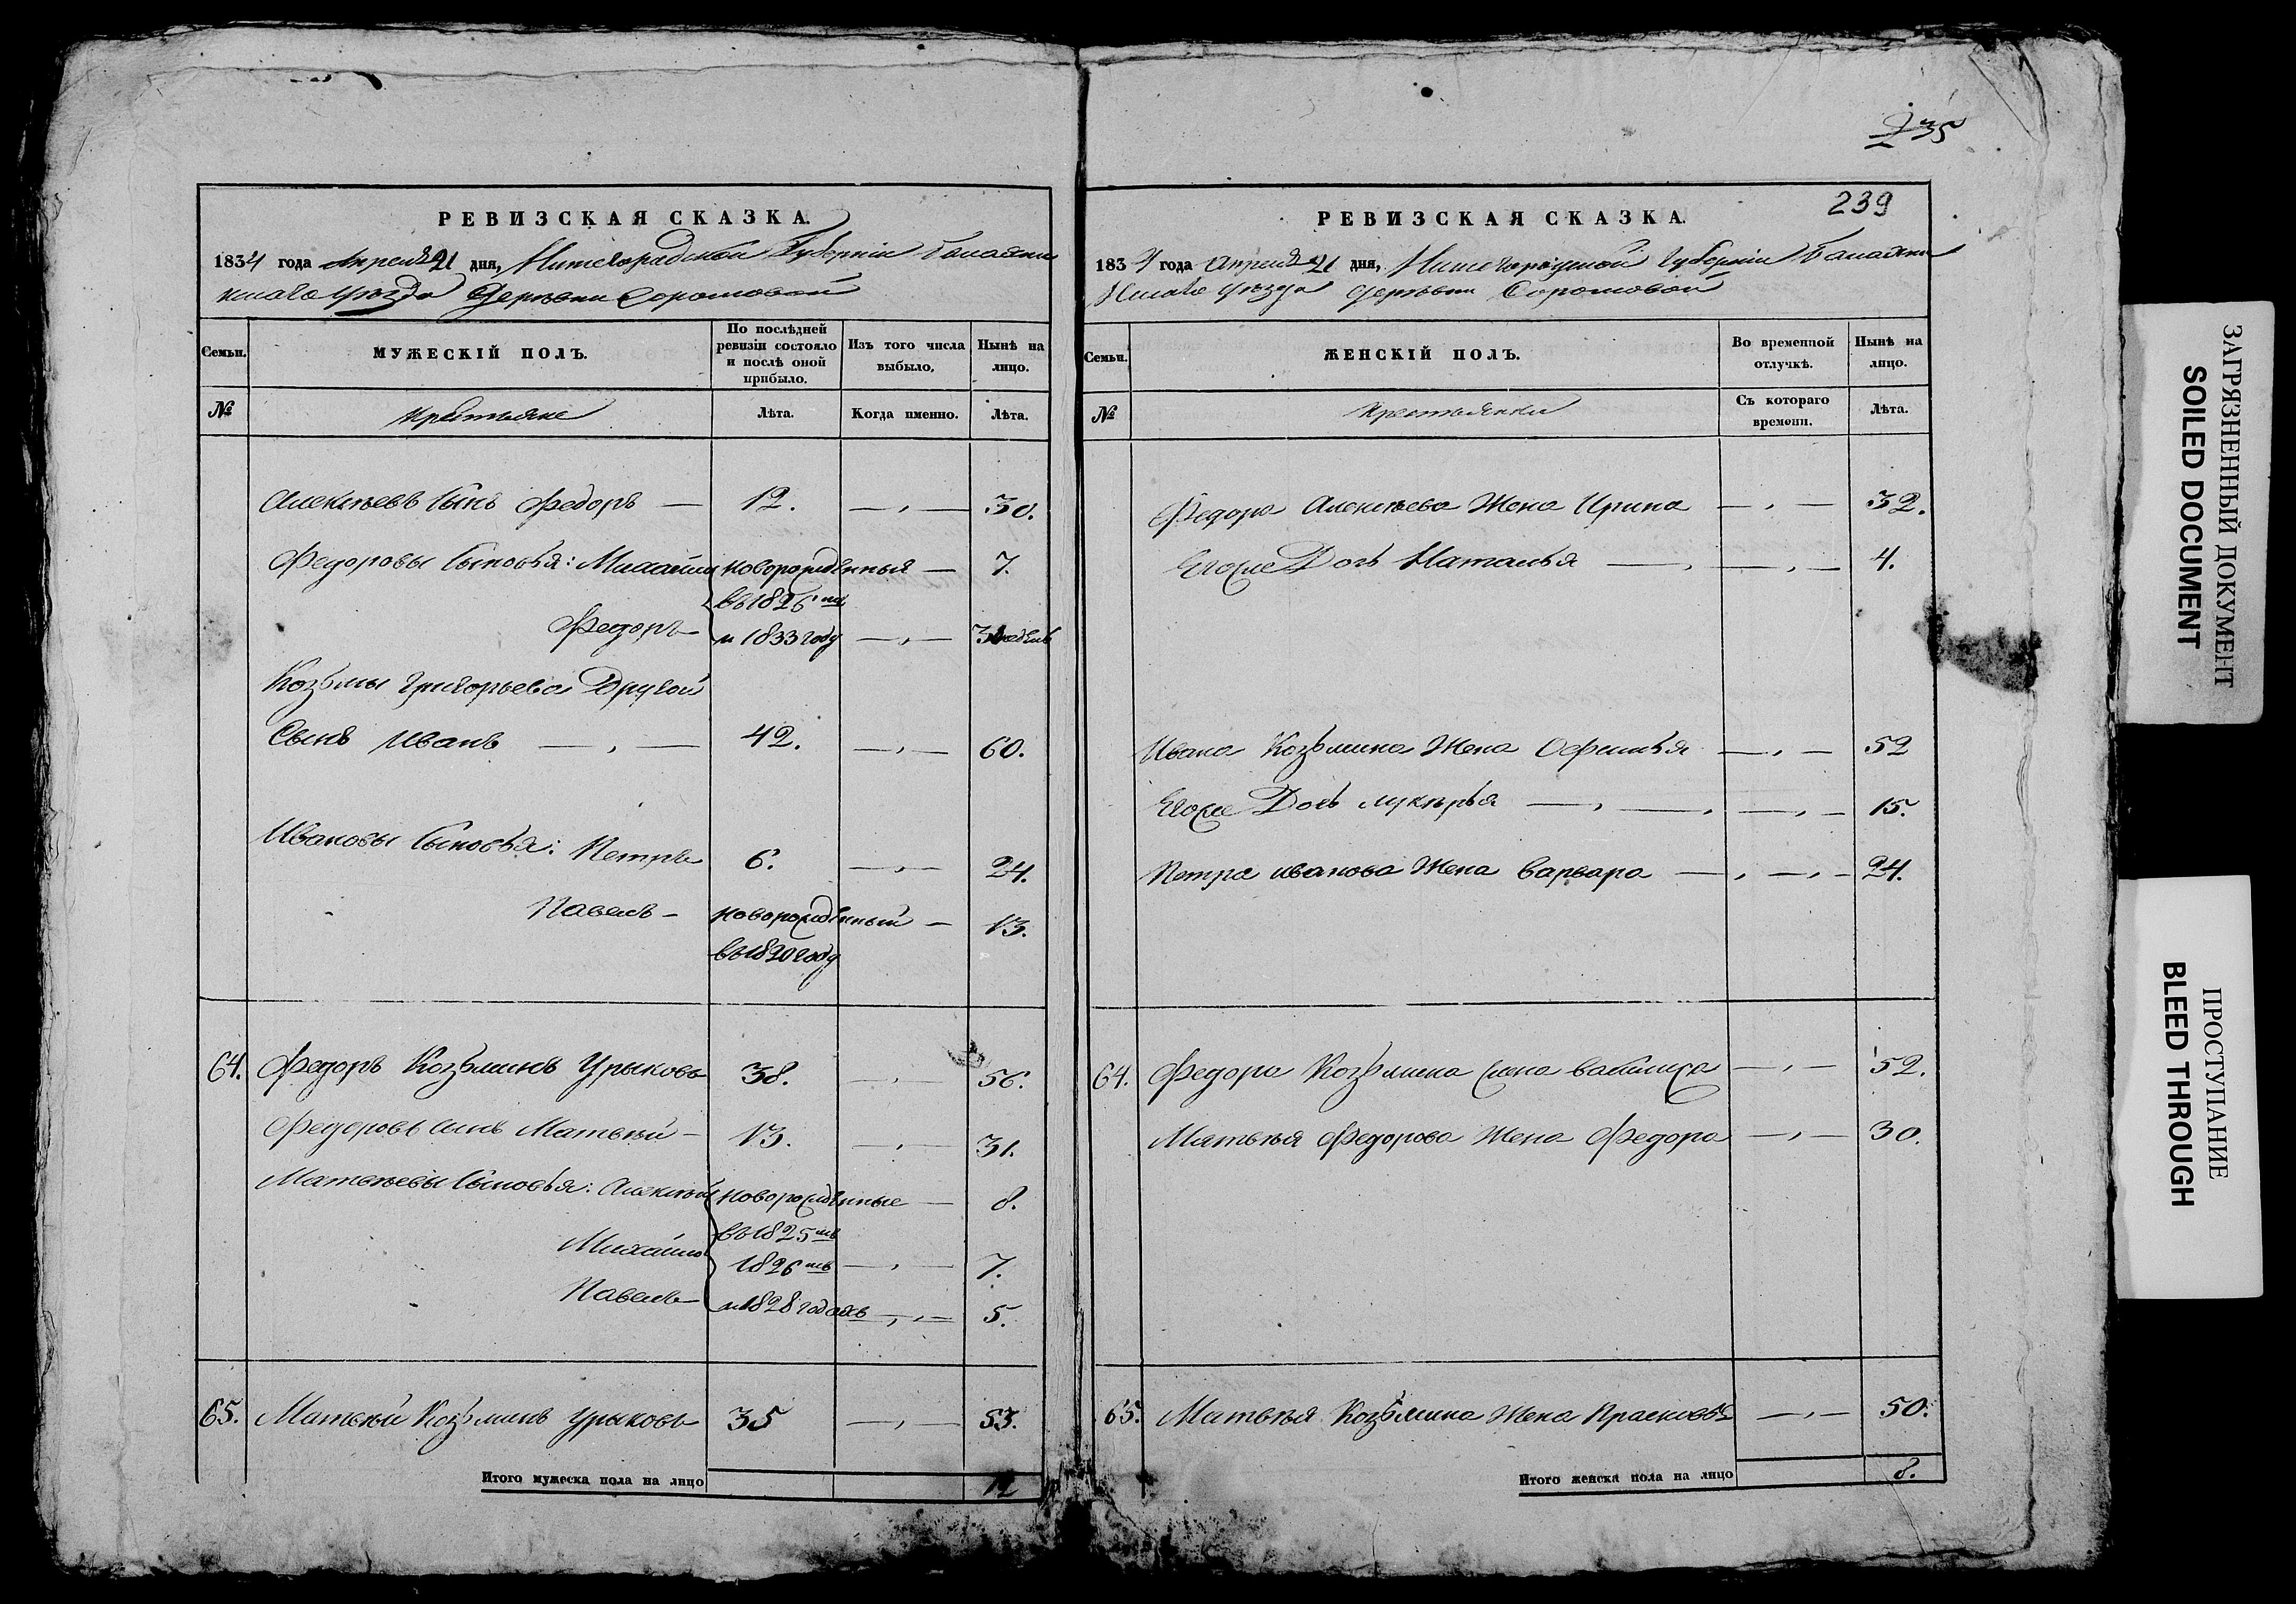 235
РЕВИЗСКАЯ СКАЗКА.
1834 года Апреля 21 дня, Нижегородской Губерніи Балахни
нскаго Уѣзда Деревни Соромовой
Семьи.
МУЖЕСКІЙ ПОЛЪ.
По послѣдней ревизіи состояло и послѣ оной прибыло.
Изъ того числа выбыло,
Нынѣ на лицо.
№ Крестьяне Лѣта. Когда именно. Лѣта.
Алексѣевъ Сынъ Федоръ — 12. — 30.
Федоровы Сыновья: Михайла новорожденныя — 7.
въ 1826мъ
Федоръ — и 1833 году —
Козьмы Григорьева Другой
Сынъ Иванъ — 42. — 60.
Ивановы Сыновья: Петръ 6. — 24.
Павелъ — новорожденный — 13.
въ 1820 году
64. Федоръ Козьминъ Урыковъ 38. — 56.
Федоровъ Сынъ Матвѣй — 13. — 31.
Матвѣевы Сыновья: Алексѣй новорожденные — 8.
въ 1825мъ
Михайло 1826мъ — 7.
Павелъ — и 1828 годахъ — 5.
65. Матвѣй Козьминъ Урыковъ 35 — 53.
Итого мужеска пола на лицо 12
РЕВИЗСКАЯ СКАЗКА. 239
1834 года Апреля 21 дня, Нижегородской Губерніи Балахни
нскаго Уѣзда Деревни Соромовой
Семьи.
ЖЕНСКІЙ ПОЛЪ.
Во временной отлучкѣ.
Нынѣ на лицо.
№ Крестьянки Съ котораго времени. Лѣта.
Федора Алексѣева Жена Ирина — 32.
Егоже Дочь Наталья — 4.
Ивана Козьмина Жена Офимья — 52
Егоже Дочь Лукѣрья — 15.
Петра Иванова Жена Варвара — 24.
64. Федора Козьмина Жена — 52.
Матвѣя Федорова Жена Федора — 30.
65. Матвѣя Козьмина Жена Прасковья — 50.
Итого женска пола на лицо 8.
ЗАГРЯЗНЕННЫЙ ДОКУМЕНТ
SOILED DOCUMENT
ПРОСТУПАНИЕ
BLEED THROUGH